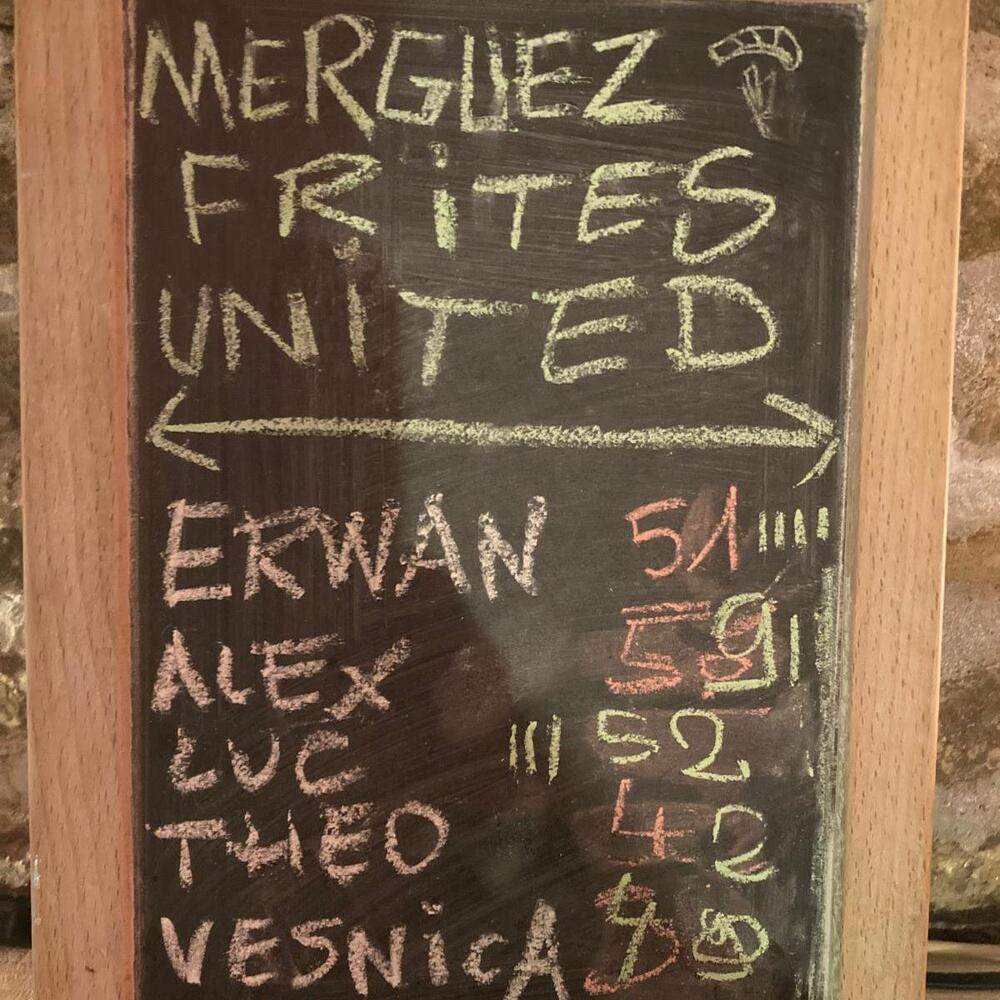 MERGUEZ
FRiTES
UNITED
ERWAN 51 ||||
ALEX 59 |
LUC ||| 52
THEO 42
VESNiCA